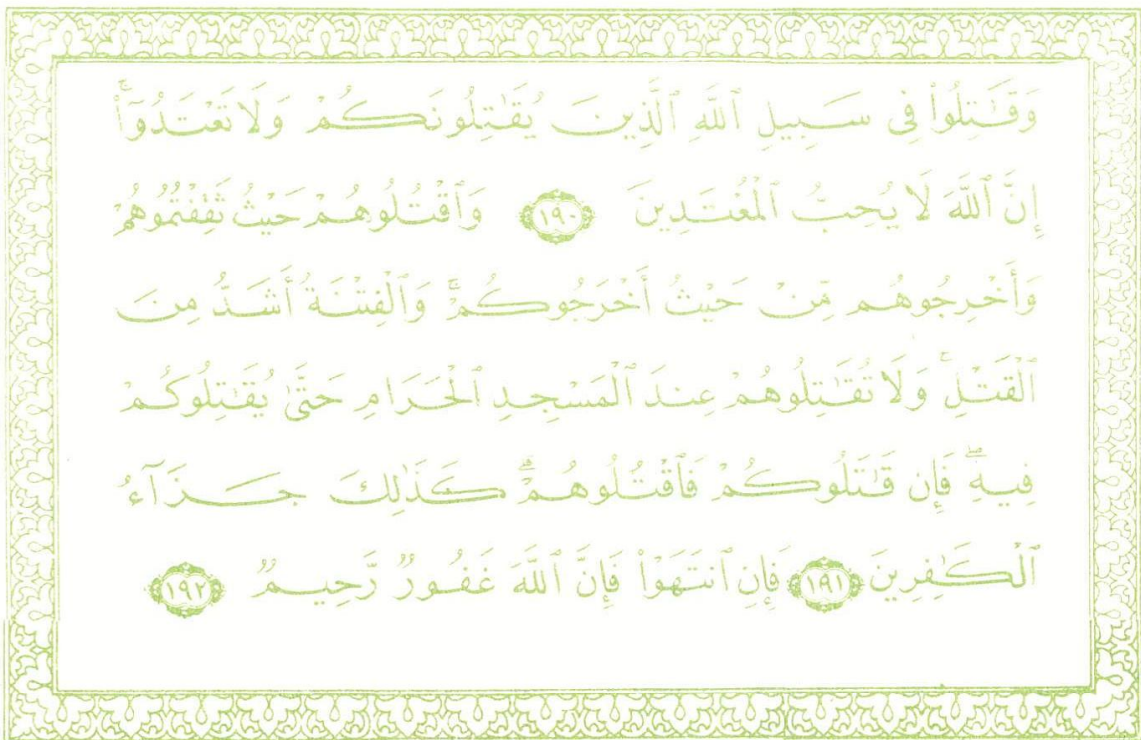 وَقَٰتِلُوا۟ فِى سَبِيلِ ٱللَّهِ ٱلَّذِينَ يُقَٰتِلُونَكُمْ وَلَا تَعْتَدُوٓا۟ۚ
إِنَّ ٱللَّهَ لَا يُحِبُّ ٱلْمُعْتَدِينَ ١٩٠ وَٱقْتُلُوهُمْ حَيْثُ ثَقِفْتُمُوهُمْ
وَأَخْرِجُوهُم مِّنْ حَيْثُ أَخْرَجُوكُمْۚ وَٱلْفِتْنَةُ أَشَدُّ مِنَ
ٱلْقَتْلِۚ وَلَا تُقَٰتِلُوهُمْ عِندَ ٱلْمَسْجِدِ ٱلْحَرَامِ حَتَّىٰ يُقَٰتِلُوكُمْ
فِيهِۖ فَإِن قَٰتَلُوكُمْ فَٱقْتُلُوهُمْۗ كَذَٰلِكَ جَزَآءُ
ٱلْكَٰفِرِينَ ١٩١ فَإِنِ ٱنتَهَوْا۟ فَإِنَّ ٱللَّهَ غَفُورٌ رَّحِيمٌ ١٩٢